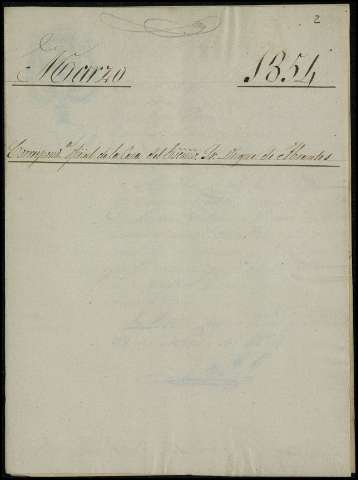 2
Marzo 1854
Correspond.ª oficial de la Casa del Excmo. Sr. Duque de Abrantes